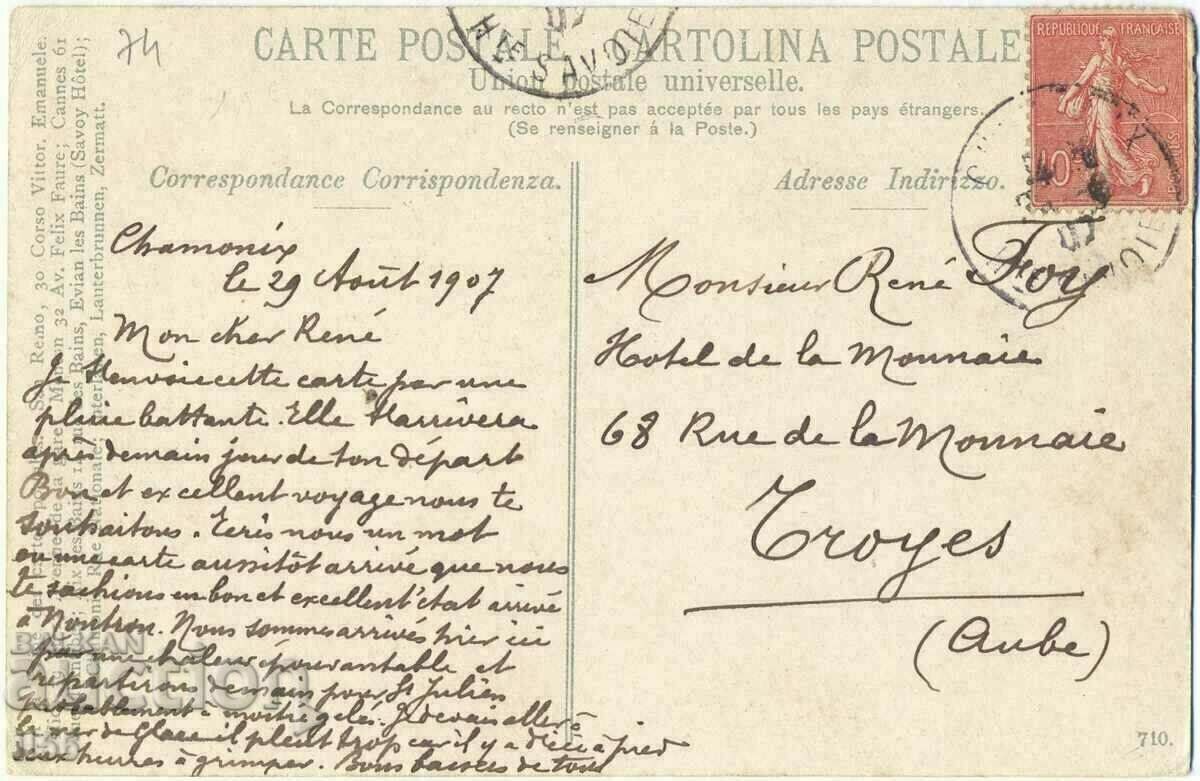 74
CARTE POSTALE CARTOLINA POSTALE
Union postale universelle.
La Correspondance au recto n'est pas acceptée par tous les pays étrangers.
(Se renseigner á la Poste.)
Hte SAVOIE
07
RÉPUBLIQUE FRANÇAISE
10
POSTES
Correspondance Corrispondenza.
Adresse Indirizzo.
Chamonix
le 29 Août 1907
Mon cher René
Je t'envoie cette carte par une
pluie battante. Elle t'arrivera
après demain jour de ton départ
Bon et excellent voyage nous te
souhaitons. Ecris nous un mot
ou une carte aussitôt arrivé que nous
te sachions en bon et excellent état arrivé
à Nontron. Nous sommes arrivés hier ici
par une chaleur épouvantable et
repartirons demain pour St Julien
probablement à moitié gelés. Je devais aller à
la mer de Glace il pleut trop car il y a d'ici à pied
deux heures à grimper. Bons baisers de tous
Monsieur René Foy
Hotel de la Monnaie
68 Rue de la Monnaie
Troyes
(Aube)
San Remo, 30 Corso Vittor. Emanuele.
Menton 32 Av. Felix Faure; Cannes 61
Bains, Evian les Bains (Savoy Hôtel);
Interlaken, Lauterbrunnen, Zermatt.
710.
BALKAN
auction